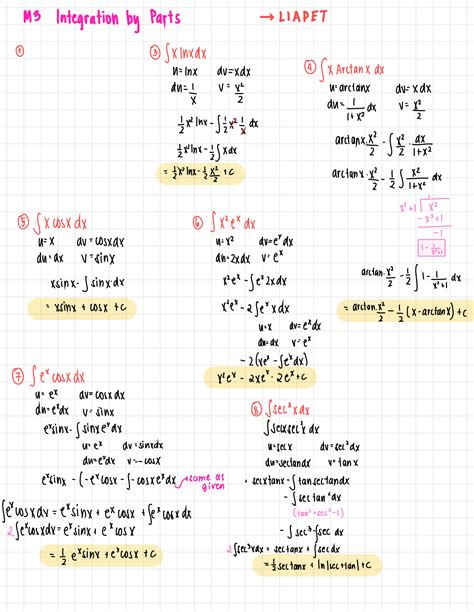 M3 Integration by Parts → LIAPET
①
③ ∫x lnxdx
u=lnx dv=xdx
du=1/x v=x²/2
1/2 x² lnx - ∫ 1/2 x² 1/x dx
1/2 x² lnx - 1/2 ∫x dx
= 1/2 x² lnx - 1/2 x²/2 + c
④ ∫x Arctanx dx
u=arctanx dv=xdx
du=1/(1+x²) dx v=x²/2
arctanx·x²/2 - ∫ x²/2 · dx/(1+x²)
arctanx·x²/2 - 1/2 ∫ x²/(1+x²) dx
x²+1 x²
-x²+1
-1
1 - 1/(x²+1)
arctan·x²/2 - 1/2 ∫ 1 - 1/(x²+1) dx
= arctan·x²/2 - 1/2 (x-arctanx)+c
⑤ ∫x cosx dx
u=x dv=cosxdx
du=dx v=sinx
xsinx-∫sinx·dx
= xsinx + cosx +c
⑥ ∫x²eˣdx
u=x² dv=eˣdx
du=2xdx v=eˣ
x²eˣ-∫eˣ2xdx
x²eˣ-2∫eˣx dx
u=x dv=eˣdx
du=dx v=eˣ
-2(xeˣ-∫eˣdx)
x²eˣ-2xeˣ·2eˣ+c
⑦ ∫eˣcosxdx
u=eˣ dv=cosxdx
du=eˣdx v=sinx
eˣsinx-∫sinxeˣdx
u=eˣ dv=sinxdx
du=eˣdx v=-cosx
eˣsinx-(-eˣcosx-∫-cosxeˣdx) same as given
∫eˣcosxdx=eˣsinx+eˣcosx+∫eˣcosxdx
2∫eˣcosxdx=eˣsinx+eˣcosx
= 1/2 eˣsinx+eˣcosx+c
⑧ ∫sec³xdx
∫secxsec²x dx
u=secx dv=sec²dx
du=sectandx v=tanx
secxtanx-∫tansectandx
-∫sectan²dx
(tan²=sec²-1)
-∫sec³-∫sec dx
2∫sec³xdx=sectanx+∫secdx
= 1/2 sectanx+ln|sec+tan|+c